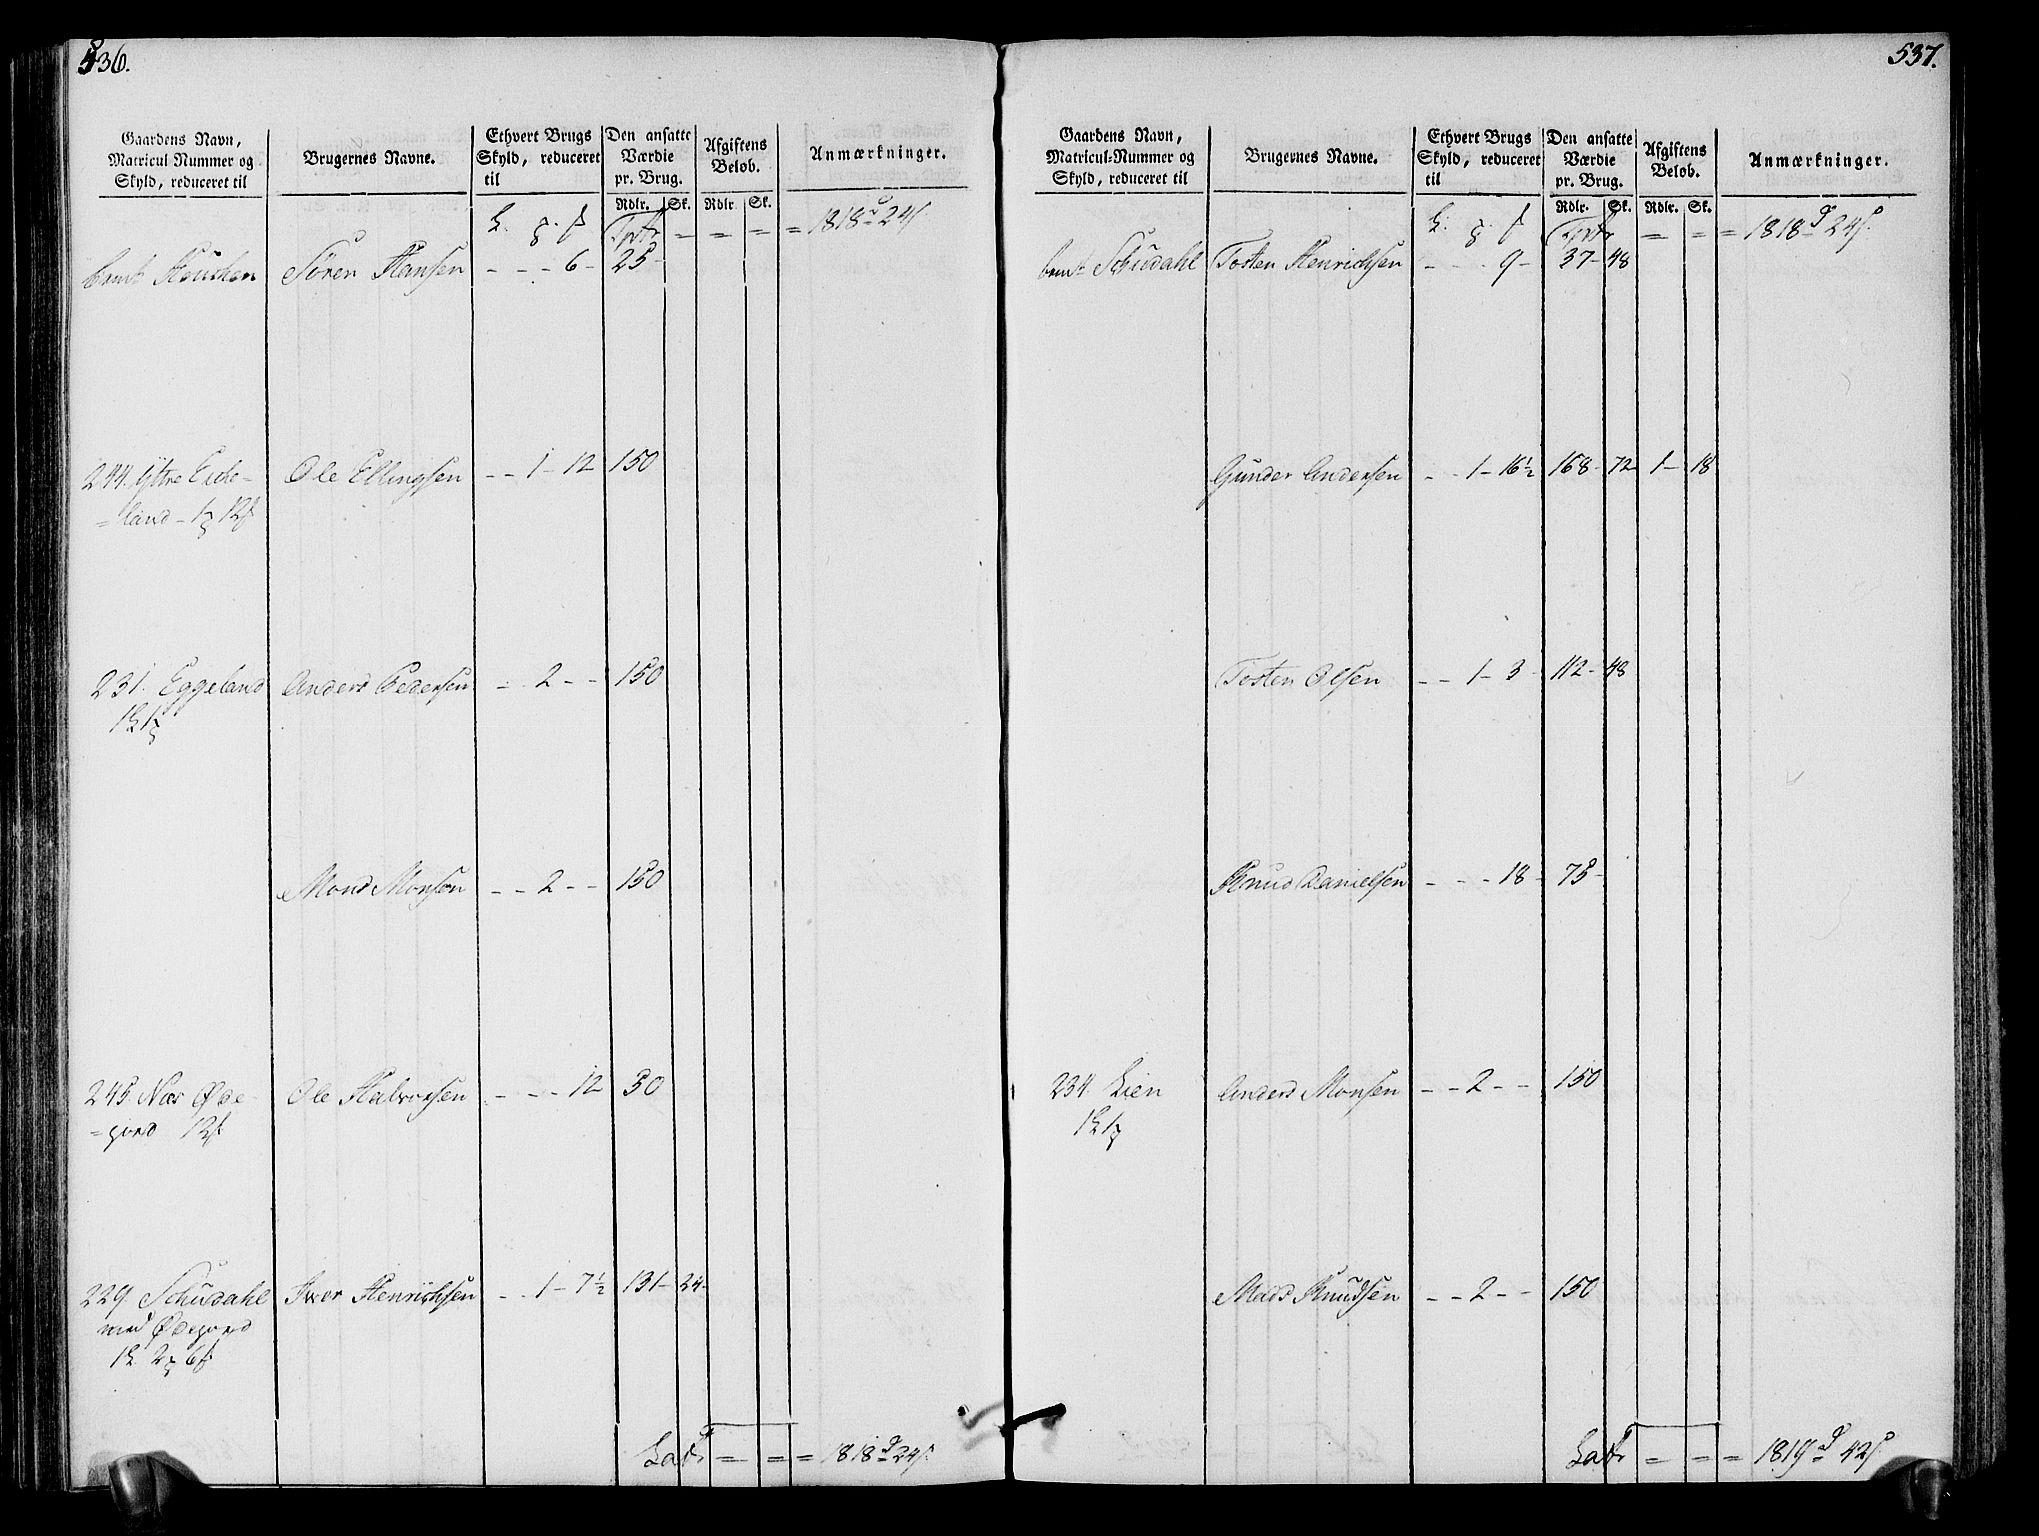 536.
Gaardens Navn, Matricul Nummer og Skyld, reduceret til
Brugernes Navne.
Ethvert Brugs Skyld, reduceret til
Den ansatte Værdie pr. Brug.
Afgiftens Beløb.
Anmærkninger.
Rdlr. Sk. Rdlr. Sk.
Tptr = = = = 1818 d 24 s.
Søren Hansen - - - 6 - 25 -
244. Yttre Eide- Ole Ellingsen - - 1 - 12 150
=land - 1 12
231. Eggeland Anders Pedersen - - 2 - - 150
Mons Monsen - - 2 - - 150
245. Næs Øde- Ole Halvorsen - - - - 12 50
=gord 12
229. Schusdahl Iver Henrichsen - - 1 - 7½ 131 - 24 -
med Ødegord
1 2 6
Latr = = = 1818 d 24 s.
537.
Gaardens Navn, Matricul-Nummer og Skyld, reduceret til
Brugernes Navne.
Ethvert Brugs Skyld, reduceret til
Den ansatte Værdie pr. Brug.
Afgiftens Beløb.
Anmærkninger.
Rdlr. Sk. Rdlr. Sk.
Tptr = = = 1818 d 24 s.
bemt Schusdahl Tosten Henrichsen - - - 9 - 37 - 48
Gunder Andersen - - 1 - 16½ 168 - 72 1 - 18
Tosten Olsen - - 1 - 3 112 - 48
Knud Danielsen - - - 18 - 75 -
234. Lien Anders Monsen - - 2 - - 150
Mads Knudsen - - 2 - - 150
Latr = = = 1819 d 42 s.